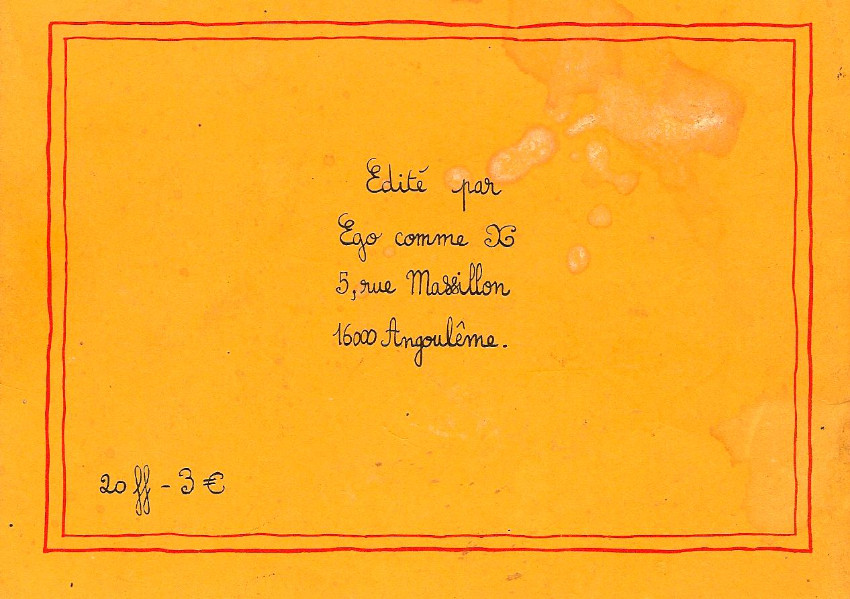 Edité par
Ego comme X
5, rue Massillon
16000 Angoulême.
20 ff - 3 €